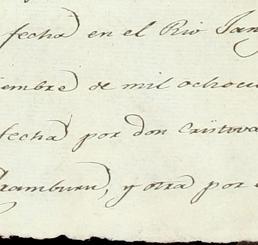 fecha en el Rio Jan
iembre de mil ochoci
fecha por don Cristova
Aramburu, y otra por